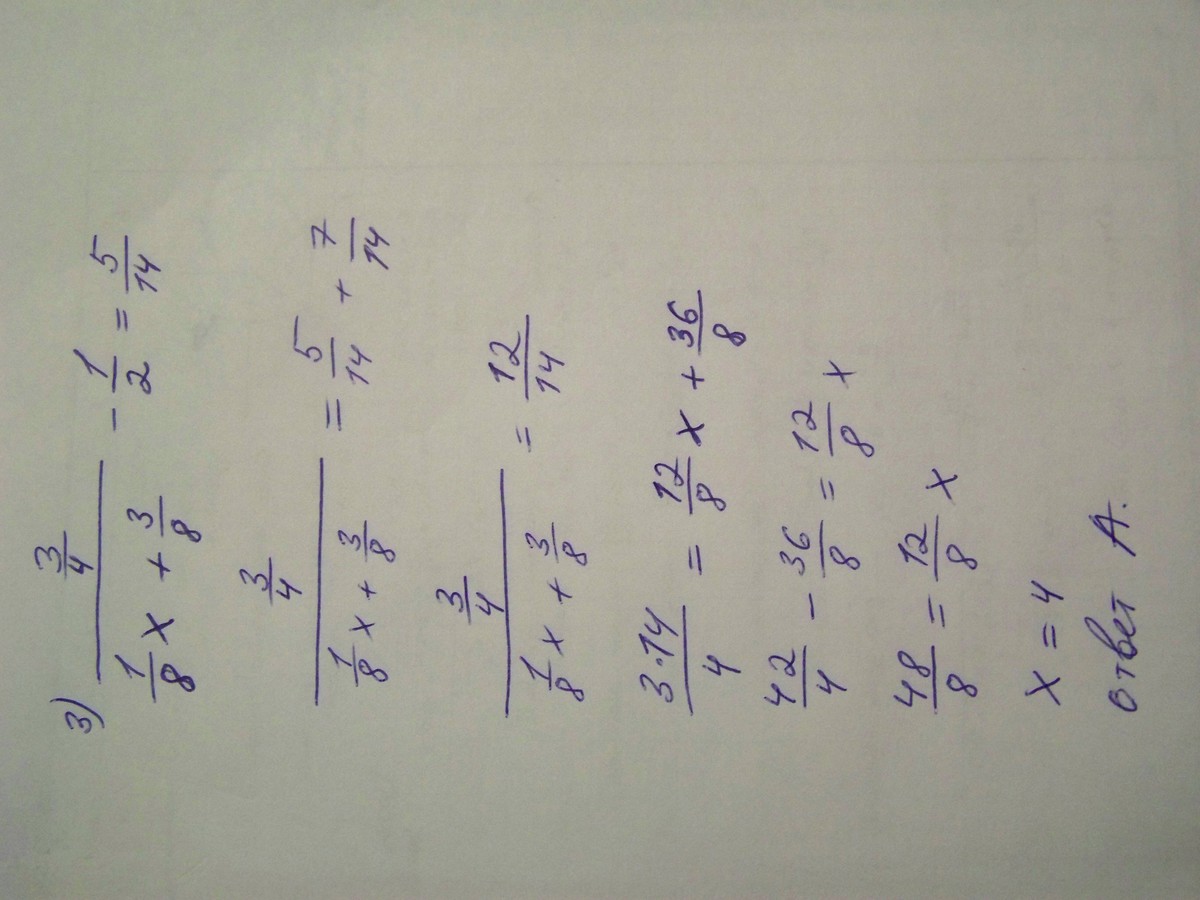 3) (3/4)/(1/8 x + 3/8) - 1/2 = 5/14
(3/4)/(1/8 x + 3/8) = 5/14 + 7/14
(3/4)/(1/8 x + 3/8) = 12/14
3·14/4 = 12/8 x + 36/8
42/4 - 36/8 = 12/8 x
48/8 = 12/8 x
x = 4
ответ А.